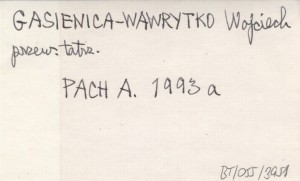 GASIENICA-WAWRYTKO Wojciech
przew. tatrz.
PACH A. 1993 a
BT/OSS/3951